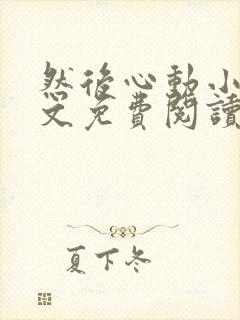 然後心動小
文免費閱讀
夏下冬